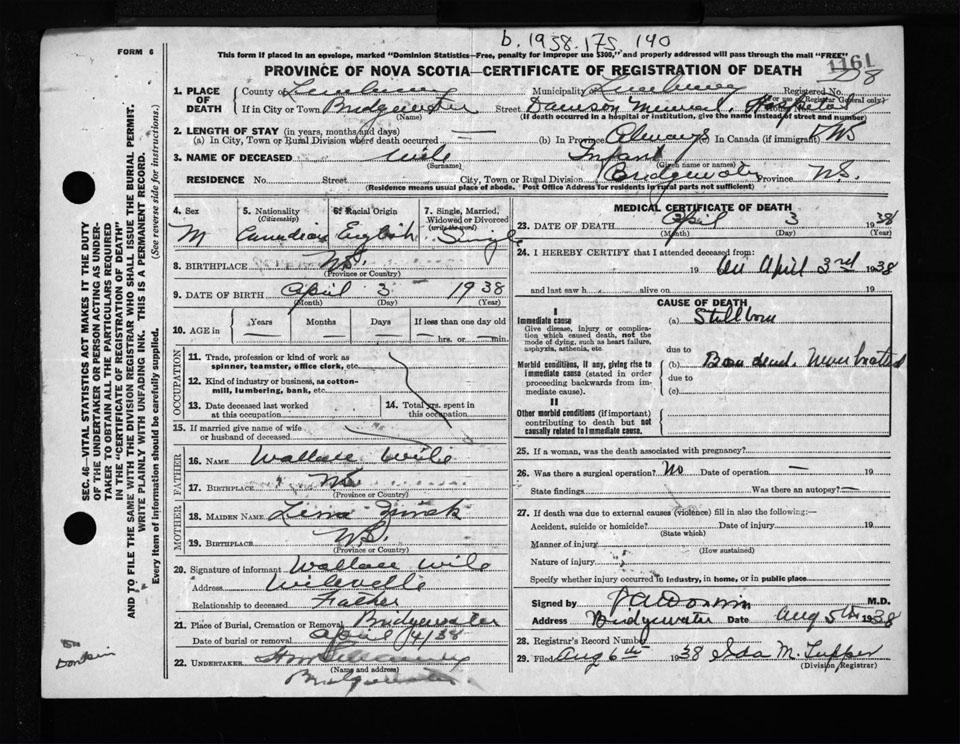 b. 1938. 175 140
FORM 6
This form if placed in an envelope, marked "Dominion Statistics—Free, penalty for improper use $300," and properly addressed will pass through the mail "FREE"
1161
PROVINCE OF NOVA SCOTIA—CERTIFICATE OF REGISTRATION OF DEATH
1. PLACE OF DEATH
County of Lunenburg Municipality of Lunenburg Registered No.
(For use of Registrar General only)
If in City or Town Bridgewater Street Dawson Memorial Hospital
(Name) (If death occurred in a hospital or institution, give the name instead of street and number)
2. LENGTH OF STAY (in years, months and days)
(a) In City, Town or Rural Division where death occurred — (b) In Province Always (c) In Canada (if immigrant)
3. NAME OF DECEASED Wile Infant
(Surname) (Given name or names)
RESIDENCE No. Street City, Town or Rural Division Bridgewater Province N.S.
(Residence means usual place of abode. Post Office Address for residents in rural parts not sufficient)
SEC. 46—VITAL STATISTICS ACT MAKES IT THE DUTY
OF THE UNDERTAKER OR PERSON ACTING AS UNDER-
TAKER TO OBTAIN ALL THE PARTICULARS REQUIRED
IN THE "CERTIFICATE OF REGISTRATION OF DEATH"
AND TO FILE THE SAME WITH THE DIVISION REGISTRAR WHO SHALL ISSUE THE BURIAL PERMIT.
WRITE PLAINLY WITH UNFADING INK. THIS IS A PERMANENT RECORD.
Every item of information should be carefully supplied. (See reverse side for instructions.)
4. Sex 5. Nationality 6. Racial Origin 7. Single, Married,
(Citizenship) Widowed or Divorced
(write the word)
M Canadian English Single
8. BIRTHPLACE N.S.
(Province or Country)
9. DATE OF BIRTH April 3 1938
(Month) (Day) (Year)
10. AGE in Years Months Days If less than one day old
hrs. or min.
OCCUPATION
11. Trade, profession or kind of work as
spinner, teamster, office clerk, etc.
12. Kind of industry or business, as cotton-
mill, lumbering, bank, etc.
13. Date deceased last worked
at this occupation
14. Total yrs. spent in
this occupation
15. If married give name of wife
or husband of deceased
FATHER
16. NAME Wallace Wile
17. BIRTHPLACE N.S.
(Province or Country)
MOTHER
18. MAIDEN NAME Zinck
19. BIRTHPLACE N.S.
(Province or Country)
20. Signature of informant Wallace Wile
Address Wileville
Relationship to deceased Father
21. Place of Burial, Cremation or Removal Bridgewater
Date of burial or removal April 4/38
22. UNDERTAKER
(Name and address)
Bridgewater
Dr Donkin
MEDICAL CERTIFICATE OF DEATH
23. DATE OF DEATH April 3 1938
(Month) (Day) (Year)
24. I HEREBY CERTIFY that I attended deceased from:
19 on April 3rd 1938
and last saw h alive on 19
CAUSE OF DEATH
I
Immediate cause (a) Stillborn
Give disease, injury or complica-
tion which caused death, not the
mode of dying, such as heart failure,
asphyxia, asthenia, etc.
due to
Morbid conditions, if any, giving rise to
immediate cause (stated in order
proceeding backwards from im-
mediate cause).
(b) Born dead. Never breathed
due to
(c)
II
Other morbid conditions (if important)
contributing to death but not
causally related to immediate cause.
25. If a woman, was the death associated with pregnancy?
26. Was there a surgical operation? No Date of operation — 19
State findings Was there an autopsy? —
27. If death was due to external causes (violence) fill in also the following:—
Accident, suicide or homicide? Date of injury 19
(State which)
Manner of injury
(How sustained)
Nature of injury
Specify whether injury occurred in industry, in home, or in public place
Signed by Donkin M.D.
Address Bridgewater Date Aug 5th 1938
28. Registrar's Record Number
29. Filed Aug 6th 1938 Ida M. Tupper
(Division Registrar)